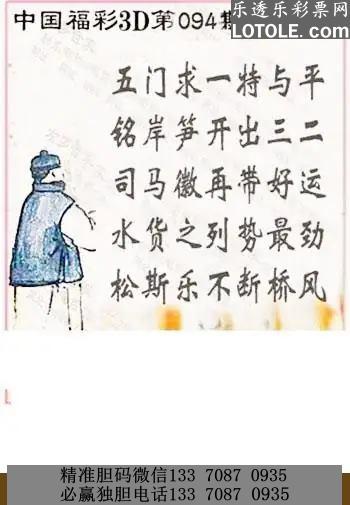 中国福彩3D第094期
乐透乐彩票网
LOTOLE.COM
五门求一特与平
铭岸笋开出三二
司马徽再带好运
水货之列势最劲
松斯乐不断桥风
L
精准胆码微信133 7087 0935
必赢独胆电话133 7087 0935